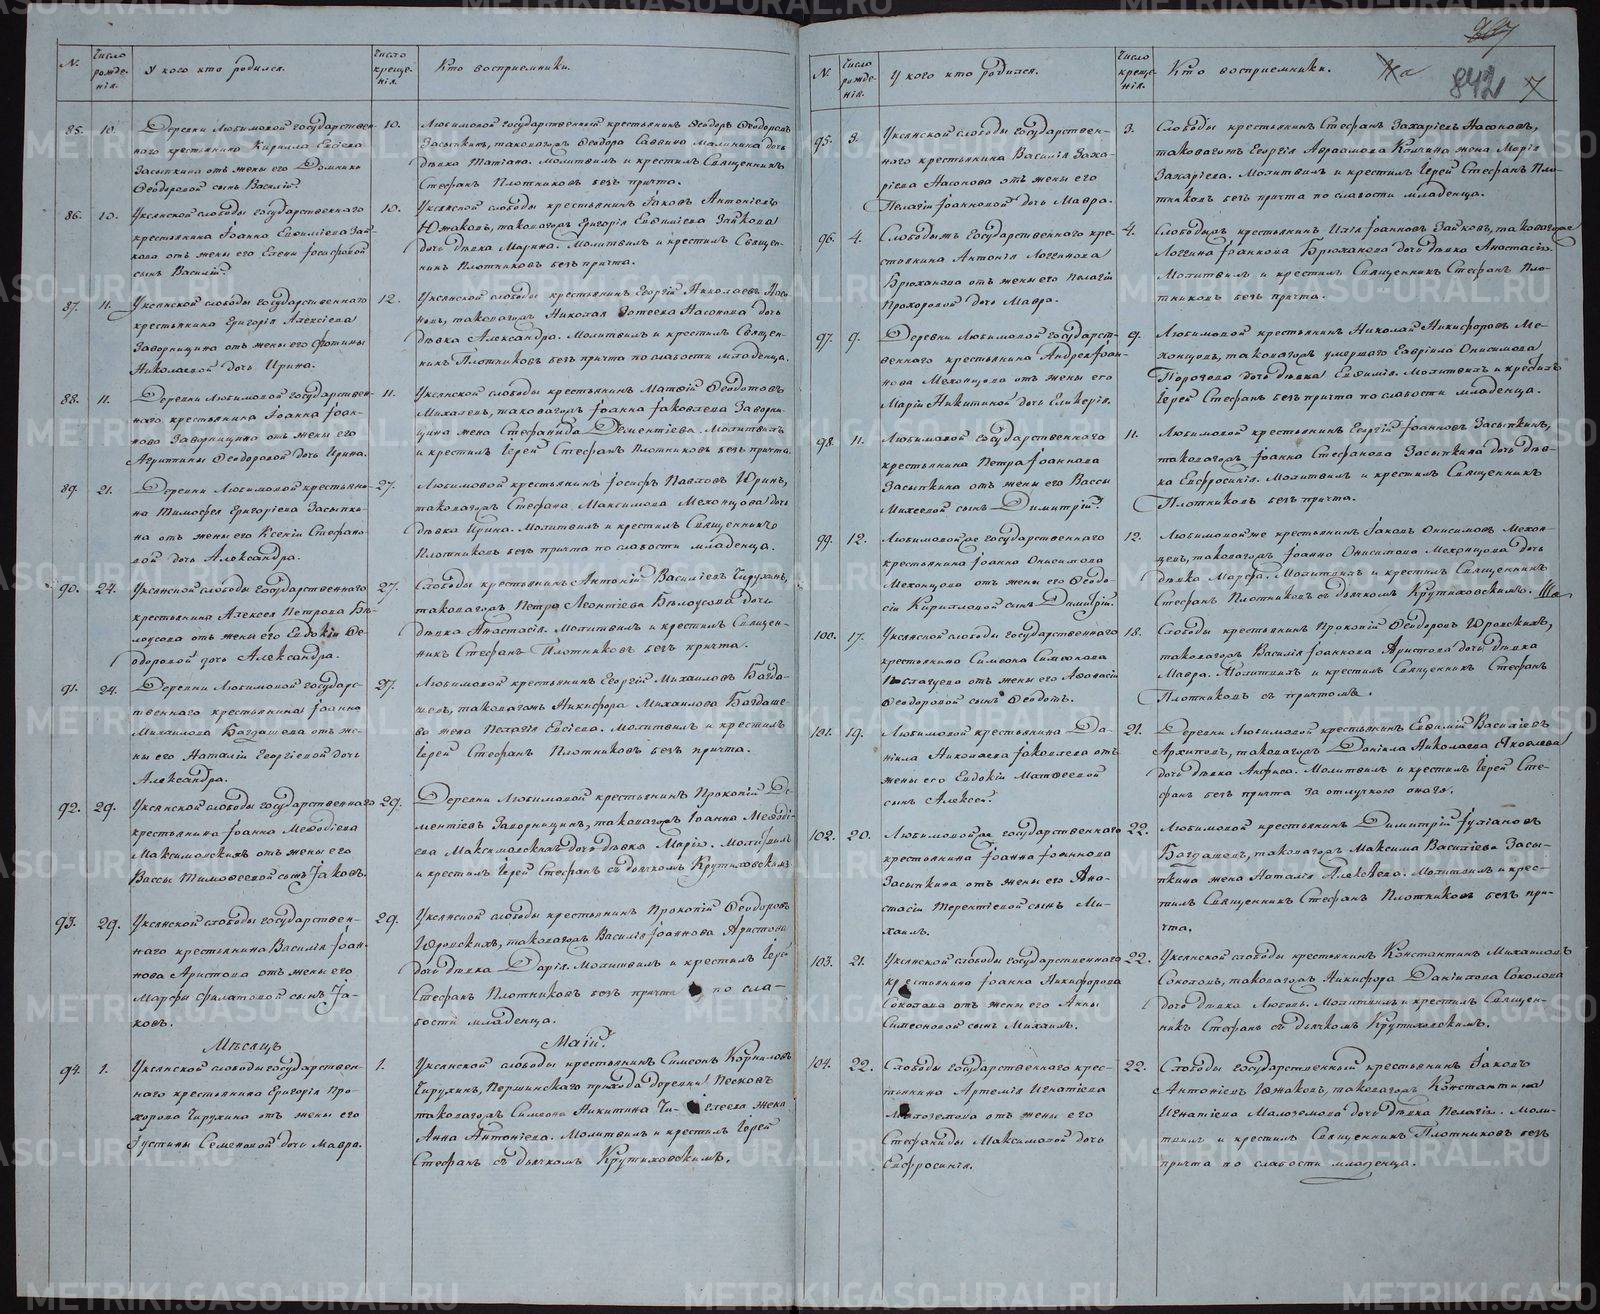 №.
Число рожденія.
У кого кто родился.
Число крещенія.
Кто восприемники.
85.
10.
Деревни Любимовой государствен-
наго крестьянина Кирилла Евсіева
Засыпкина отъ жены его Домники
Ѳеодоровой сынъ Василій.
10.
Любимовой государственный крестьянинъ Ѳеодоръ Ѳеодоровъ
Засыпкинъ, таковагожъ Ѳеодора Саввина Малинина дочь
дѣвка Татіана. Молитвилъ и крестилъ Священникъ
Стефанъ Плотниковъ безъ причта.
86.
10.
Уксянской слободы государственнаго
крестьянина Іоанна Евфиміева Зай-
кова отъ жены его Елены Іосифовой
сынъ Василій.
10.
Уксянской слободы крестьянинъ Іаковъ Антоніевъ
Южаковъ, таковагожъ Григорія Евфиміева Зайкова
дочь дѣвка Марина. Молитвилъ и крестилъ Священ-
никъ Плотниковъ безъ причта.
87.
11.
Уксянской слободы государственнаго
крестьянина Григорія Алексіева
Заворницина отъ жены его Фотины
Николаевой дочь Ирина.
12.
Уксянской слободы крестьянинъ Георгій Николаевъ Насо-
новъ, таковагожъ Николая Насонова дочь
дѣвка Александра. Молитвилъ и крестилъ Священ-
никъ Плотниковъ безъ причта по слабости младенца.
88.
11.
Деревни Любимовой государствен-
наго крестьянина Іоанна Іоан-
нова Заворницина отъ жены его
Агриппины Ѳеодоровой дочь Ирина.
11.
Уксянской слободы крестьянинъ Матѳій Ѳеодотовъ
Михалевъ, таковагожъ Іоанна Іаковлева Заворни-
цина жена Стефанида Дементіева. Молитвилъ
и крестилъ Іерей Стефанъ Плотниковъ безъ причта.
89.
21.
Деревни Любимовой крестьяни-
на Тимоѳея Григоріева Засыпки-
на отъ жены его Ксеніи Стефано-
вой дочь Александра.
27.
Любимовой крестьянинъ Іосифъ Павловъ Юринъ,
таковагожъ Стефана Максимова Мехонцова дочь
дѣвка Ирина. Молитвилъ и крестилъ Священникъ
Плотниковъ безъ причта по слабости младенца.
90.
24.
Уксянской слободы государственнаго
крестьянина Алексея Петрова Бѣ-
лоусова отъ жены его Евдокіи Ѳе-
одоровой дочь Александра.
27.
Слободы крестьянинъ Антоній Василіевъ Чирухинъ,
таковагожъ Петра Леонтіева Бѣлоусова дочь
дѣвка Анастасія. Молитвилъ и крестилъ Священ-
никъ Стефанъ Плотниковъ безъ причта.
91.
24.
Деревни Любимовой государс-
твеннаго крестьянина Іоанна
Михайлова Багдашева отъ же-
ны его Наталіи Георгіевой дочь
Александра.
27.
Любимовой крестьянинъ Георгій Михаиловъ Багда-
шевъ, таковагожъ Никифора Михаилова Багдаше-
ва жена Пелагія Евсіева. Молитвилъ и крестилъ
Іерей Стефанъ Плотниковъ безъ причта.
92.
29.
Уксянской слободы государственнаго
крестьянина Іоанна Меѳодіева
Максимовскихъ отъ жены его
Вассы Тимоѳеевой сынъ Іаковъ.
29.
Деревни Любимовой крестьянинъ Прокопій Де-
ментіевъ Заворницинъ, таковагожъ Іоанна Меѳоді-
ева Максимовскихъ дочь дѣвка Марія. Молитвилъ
и крестилъ Іерей Стефанъ съ дьячкомъ Крутиховскимъ.
93.
29.
Уксянской слободы государствен-
наго крестьянина Василія Іоан-
нова Аристова отъ жены его
Марѳы Филатовой сынъ Іа-
ковъ.
29.
Уксянской слободы крестьянинъ Прокопій Ѳеодоровъ
Юровскихъ, таковагожъ Василія Іоаннова Аристова
дочь дѣвка Дарія. Молитвилъ и крестилъ Іерей
Стефанъ Плотниковъ безъ причта по сла-
бости младенца.
Мѣсяцъ Маій.
94.
1.
Уксянской слободы государствен-
наго крестьянина Григорія Про-
хорова Чирухина отъ жены его
Іустины Семеновой дочь Мавра.
1.
Уксянской слободы крестьянинъ Симеонъ Корниловъ
Чирухинъ, Першинскаго прихода деревни Песковъ
таковагожъ Симеона Никитина жена
Анна Антоніева. Молитвилъ и крестилъ Іерей
Стефанъ съ дьячкомъ Крутиховскимъ.
842
№.
Число рожденія.
У кого кто родился.
Число крещенія.
Кто восприемники.
95.
3.
Уксянской слободы государствен-
наго крестьянина Василія Заха-
ріева Насонова отъ жены его
Пелагіи Іоанновой дочь Мавра.
3.
Слободы крестьянинъ Стефанъ Захаріевъ Насоновъ,
таковагожъ Георгія Авраамова Колчина жена Марія
Захаріева. Молитвилъ и крестилъ Іерей Стефанъ Пло-
тниковъ безъ причта по слабости младенца.
96.
4.
Слободыжъ государственнаго кре-
стьянина Антонія Логгинова
Брюханова отъ жены его Пелагіи
Прохоровой дочь Мавра.
4.
Слободыжъ крестьянинъ Илія Іоанновъ Зайковъ, таковагожъ
Логгина Іоаннова Брюханова дочь дѣвка Анастасія.
Молитвилъ и крестилъ Священникъ Стефанъ Пло-
тниковъ безъ причта.
97.
9.
Деревни Любимовой государст-
веннаго крестьянина Андрея Іоан-
нова Мехонцова отъ жены его
Маріи Никитиной дочь Гликерія.
9.
Любимовой крестьянинъ Николай Никифоровъ Ме-
хонцовъ, таковагожъ умершаго Гавріила Онисимова
Порогова дочь дѣвка Евфимія. Молитвилъ и крестилъ
Іерей Стефанъ безъ причта по слабости младенца.
98.
11.
Любимовой государственнаго
крестьянина Петра Іоаннова
Засыпкина отъ жены его Вассы
Михеевой сынъ Димитрій.
11.
Любимовой крестьянинъ Георгій Іоанновъ Засыпкинъ,
таковагожъ Іоанна Стефанова Засыпкина дочь дѣв-
ка Евфросинія. Молитвилъ и крестилъ Священникъ
Плотниковъ безъ причта.
99.
12.
Любимовойже государственнаго
крестьянина Іоанна Онисимова
Мехонцова отъ жены его Ѳеодо-
сіи Кирилловой сынъ Димитрій.
12.
Любимовойже крестьянинъ Іаковъ Онисимовъ Мехон-
цевъ, таковагожъ Іоанна Онисимова Мехонцова дочь
дѣвка Марѳа. Молитвилъ и крестилъ Священникъ
Стефанъ Плотниковъ съ дьячкомъ Крутиховскимъ.
100.
17.
Уксянской слободы государственнаго
крестьянина Симеона Симеонова
отъ жены его Аѳанасіи
Ѳеодоровой сынъ Ѳеодотъ.
18.
Слободы крестьянинъ Прокопій Ѳеодоровъ Юровскихъ,
таковагожъ Василія Іоаннова Аристова дочь дѣвка
Мавра. Молитвилъ и крестилъ Священникъ Стефанъ
Плотниковъ съ причтомъ.
101.
19.
Любимовой крестьянина Да-
ніила Николаева Іаковлева отъ
жены его Евдокіи Матѳеевой
сынъ Алексей.
21.
Деревни Любимовой крестьянинъ Евфимій Василіевъ
Архиповъ, таковагожъ Даніила Николаева Яковлева
дочь дѣвка Анфиса. Молитвилъ и крестилъ Іерей Сте-
фанъ безъ причта за отлучкою онаго.
102.
20.
Любимовойже государственнаго
крестьянина Іоанна Іоаннова
Засыпкина отъ жены его Ана-
стасіи Терентіевой сынъ Ми-
хаилъ.
22.
Любимовой крестьянинъ Димитрій Іуліановъ
Багдашевъ, таковагожъ Максима Василіева Засы-
пкина жена Наталія Алексѣева. Молитвилъ и крес-
тилъ Священникъ Стефанъ Плотниковъ безъ при-
чта.
103.
21.
Уксянской слободы государственнаго
крестьянина Іоанна Никифорова
Соколова отъ жены его Анны
Симеоновой сынъ Михаилъ.
22.
Уксянской слободы крестьянинъ Константинъ Михаиловъ
Соколовъ, таковагожъ Никифора Даніилова Соколова
дочь дѣвка Любовь. Молитвилъ и крестилъ Священ-
никъ Стефанъ съ дьячкомъ Крутиховскимъ.
104.
22.
Слободы государственнаго крес-
тьянина Артемія Игнатіева
Малоземова отъ жены его
Стефаниды Максимовой дочь
Евфросинія.
22.
Слободы государственный крестьянинъ Іаковъ
Антоніевъ Южаковъ, таковагожъ Константина
Игнатіева Малоземова дочь дѣвка Пелагія. Моли-
твилъ и крестилъ Священникъ Плотниковъ безъ
причта по слабости младенца.
METRIKI.GASO-URAL.RU